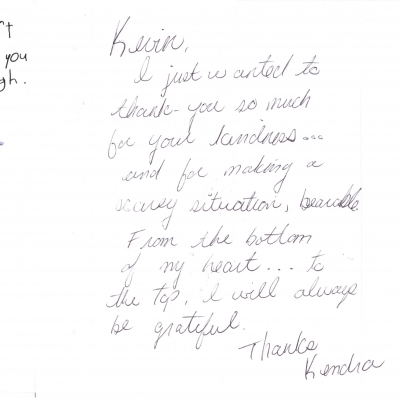 you
gh.
Kevin,
I just wanted to
thank-you so much
for your kindness...
and for making a
scarey situation, bearable.
From the bottom
of my heart... to
the top, I will always
be grateful.
Thanks
Kendra